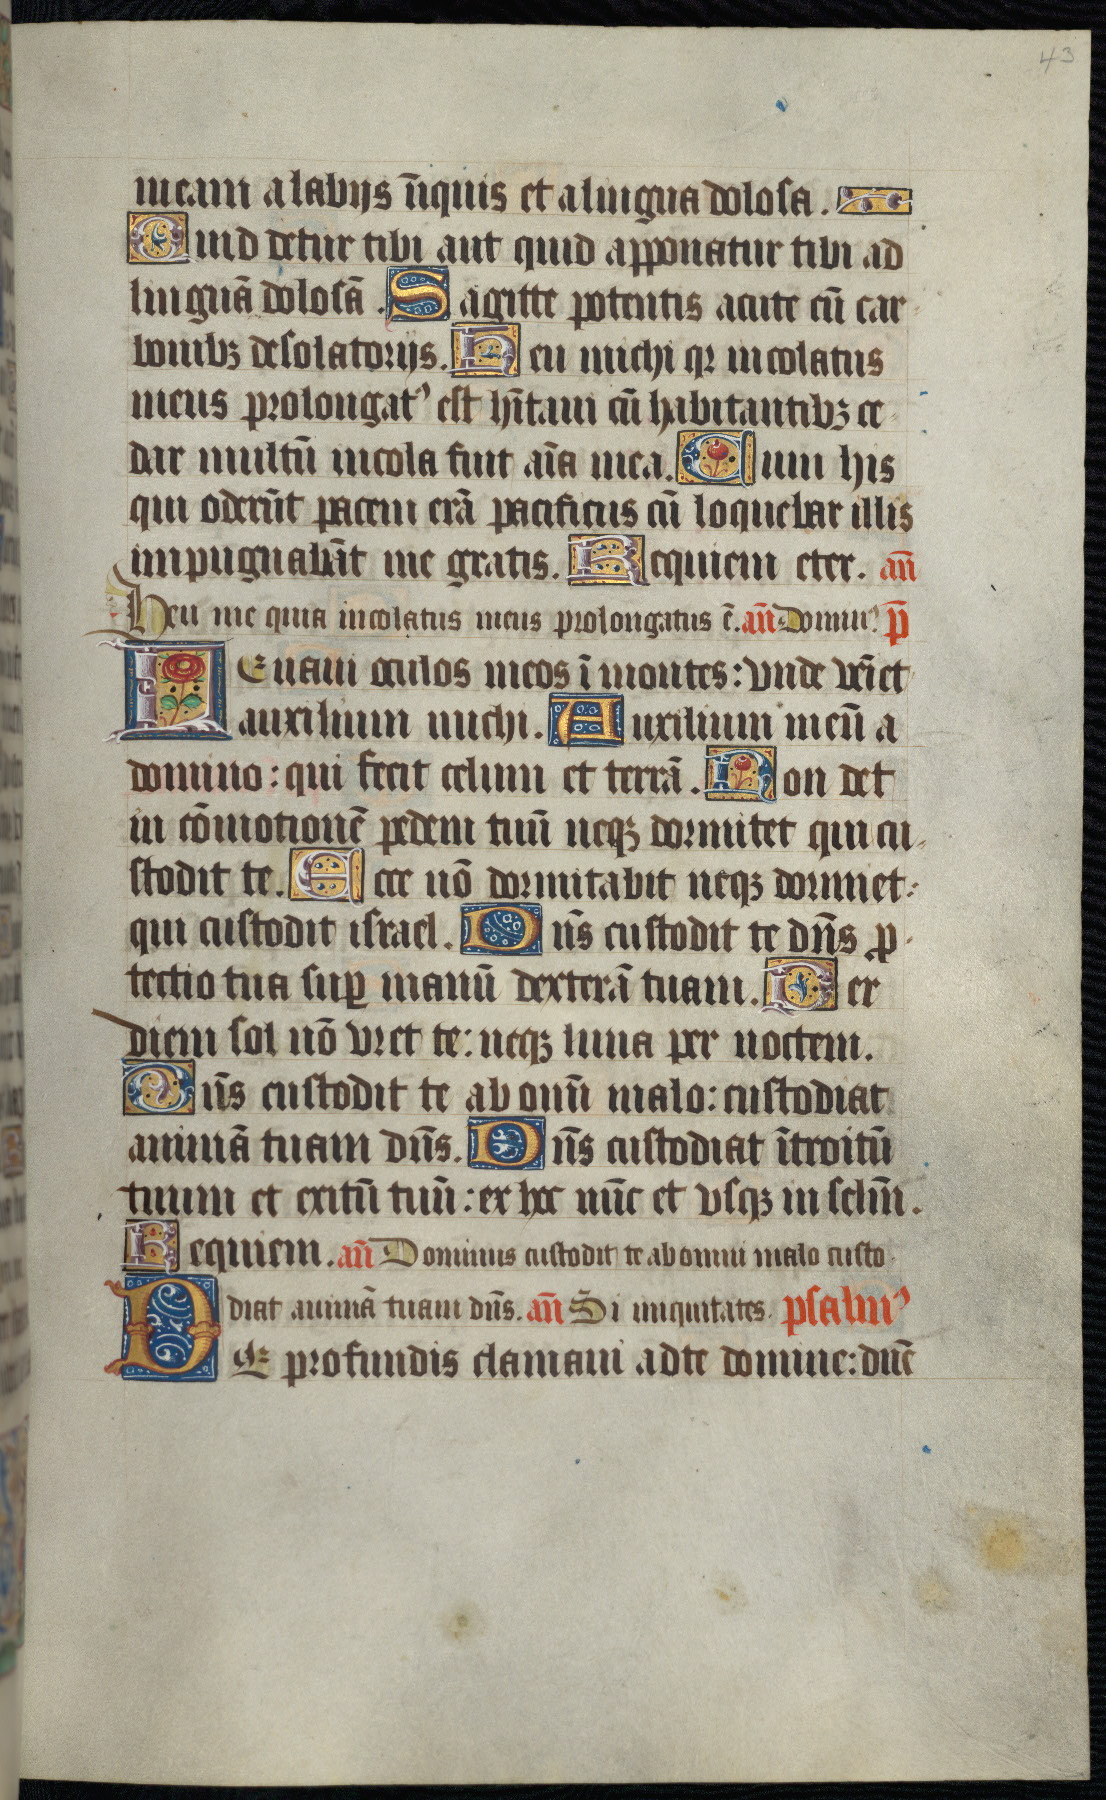 43
meam a labijs īiquis et a lingua dolosa.
Quid detur tibi aut quid apponatur tibi ad
linguā dolosā. Sagitte potentis acute cū car
bonibꝫ desolatorijs. Heu michi qꝛ incolatus
meus prolongatꝰ est hītaui cū habitantibꝫ ce
dar multū incola fuit aīa mea. Cum his
qui oderūt pacem erā pacificus cū loquebar illis
impugnabāt me gratis. Requiem eter. an̄
Heu me quia incolatus meus prolongatus ē. an̄ Dominꝰ. p̄
Leuaui oculos meos ī montes: vnde vēiet
auxilium michi. Auxilium meū a
domino: qui fecit celum et terrā. Non det
in cōmotionē pedem tuū neqꝫ dormitet qui cu
stodit te. Ecce nō dormitabit neqꝫ dormiet:
qui custodit israel. Dn̄s custodit te dn̄s ꝓ
tectio tua suꝑ manū dexterā tuam. Per
diem sol nō vret te: neqꝫ luna per noctem.
Dn̄s custodit te ab omī malo: custodiat
animā tuam dn̄s. Dn̄s custodiat ītroitū
tuum et exitū tuū: ex hoc nūc et vsqꝫ in sclm̄.
Requiem. an̄ Dominus custodit te ab omni malo custo
diat animā tuam dn̄s. an̄ Si iniquitates. psalmꝰ
De profundis clamaui ad te domine: dn̄e